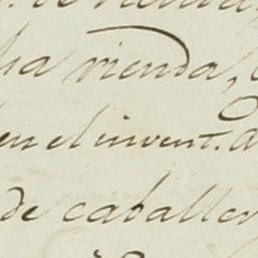 ha rienda,
en el invent.
de caballer